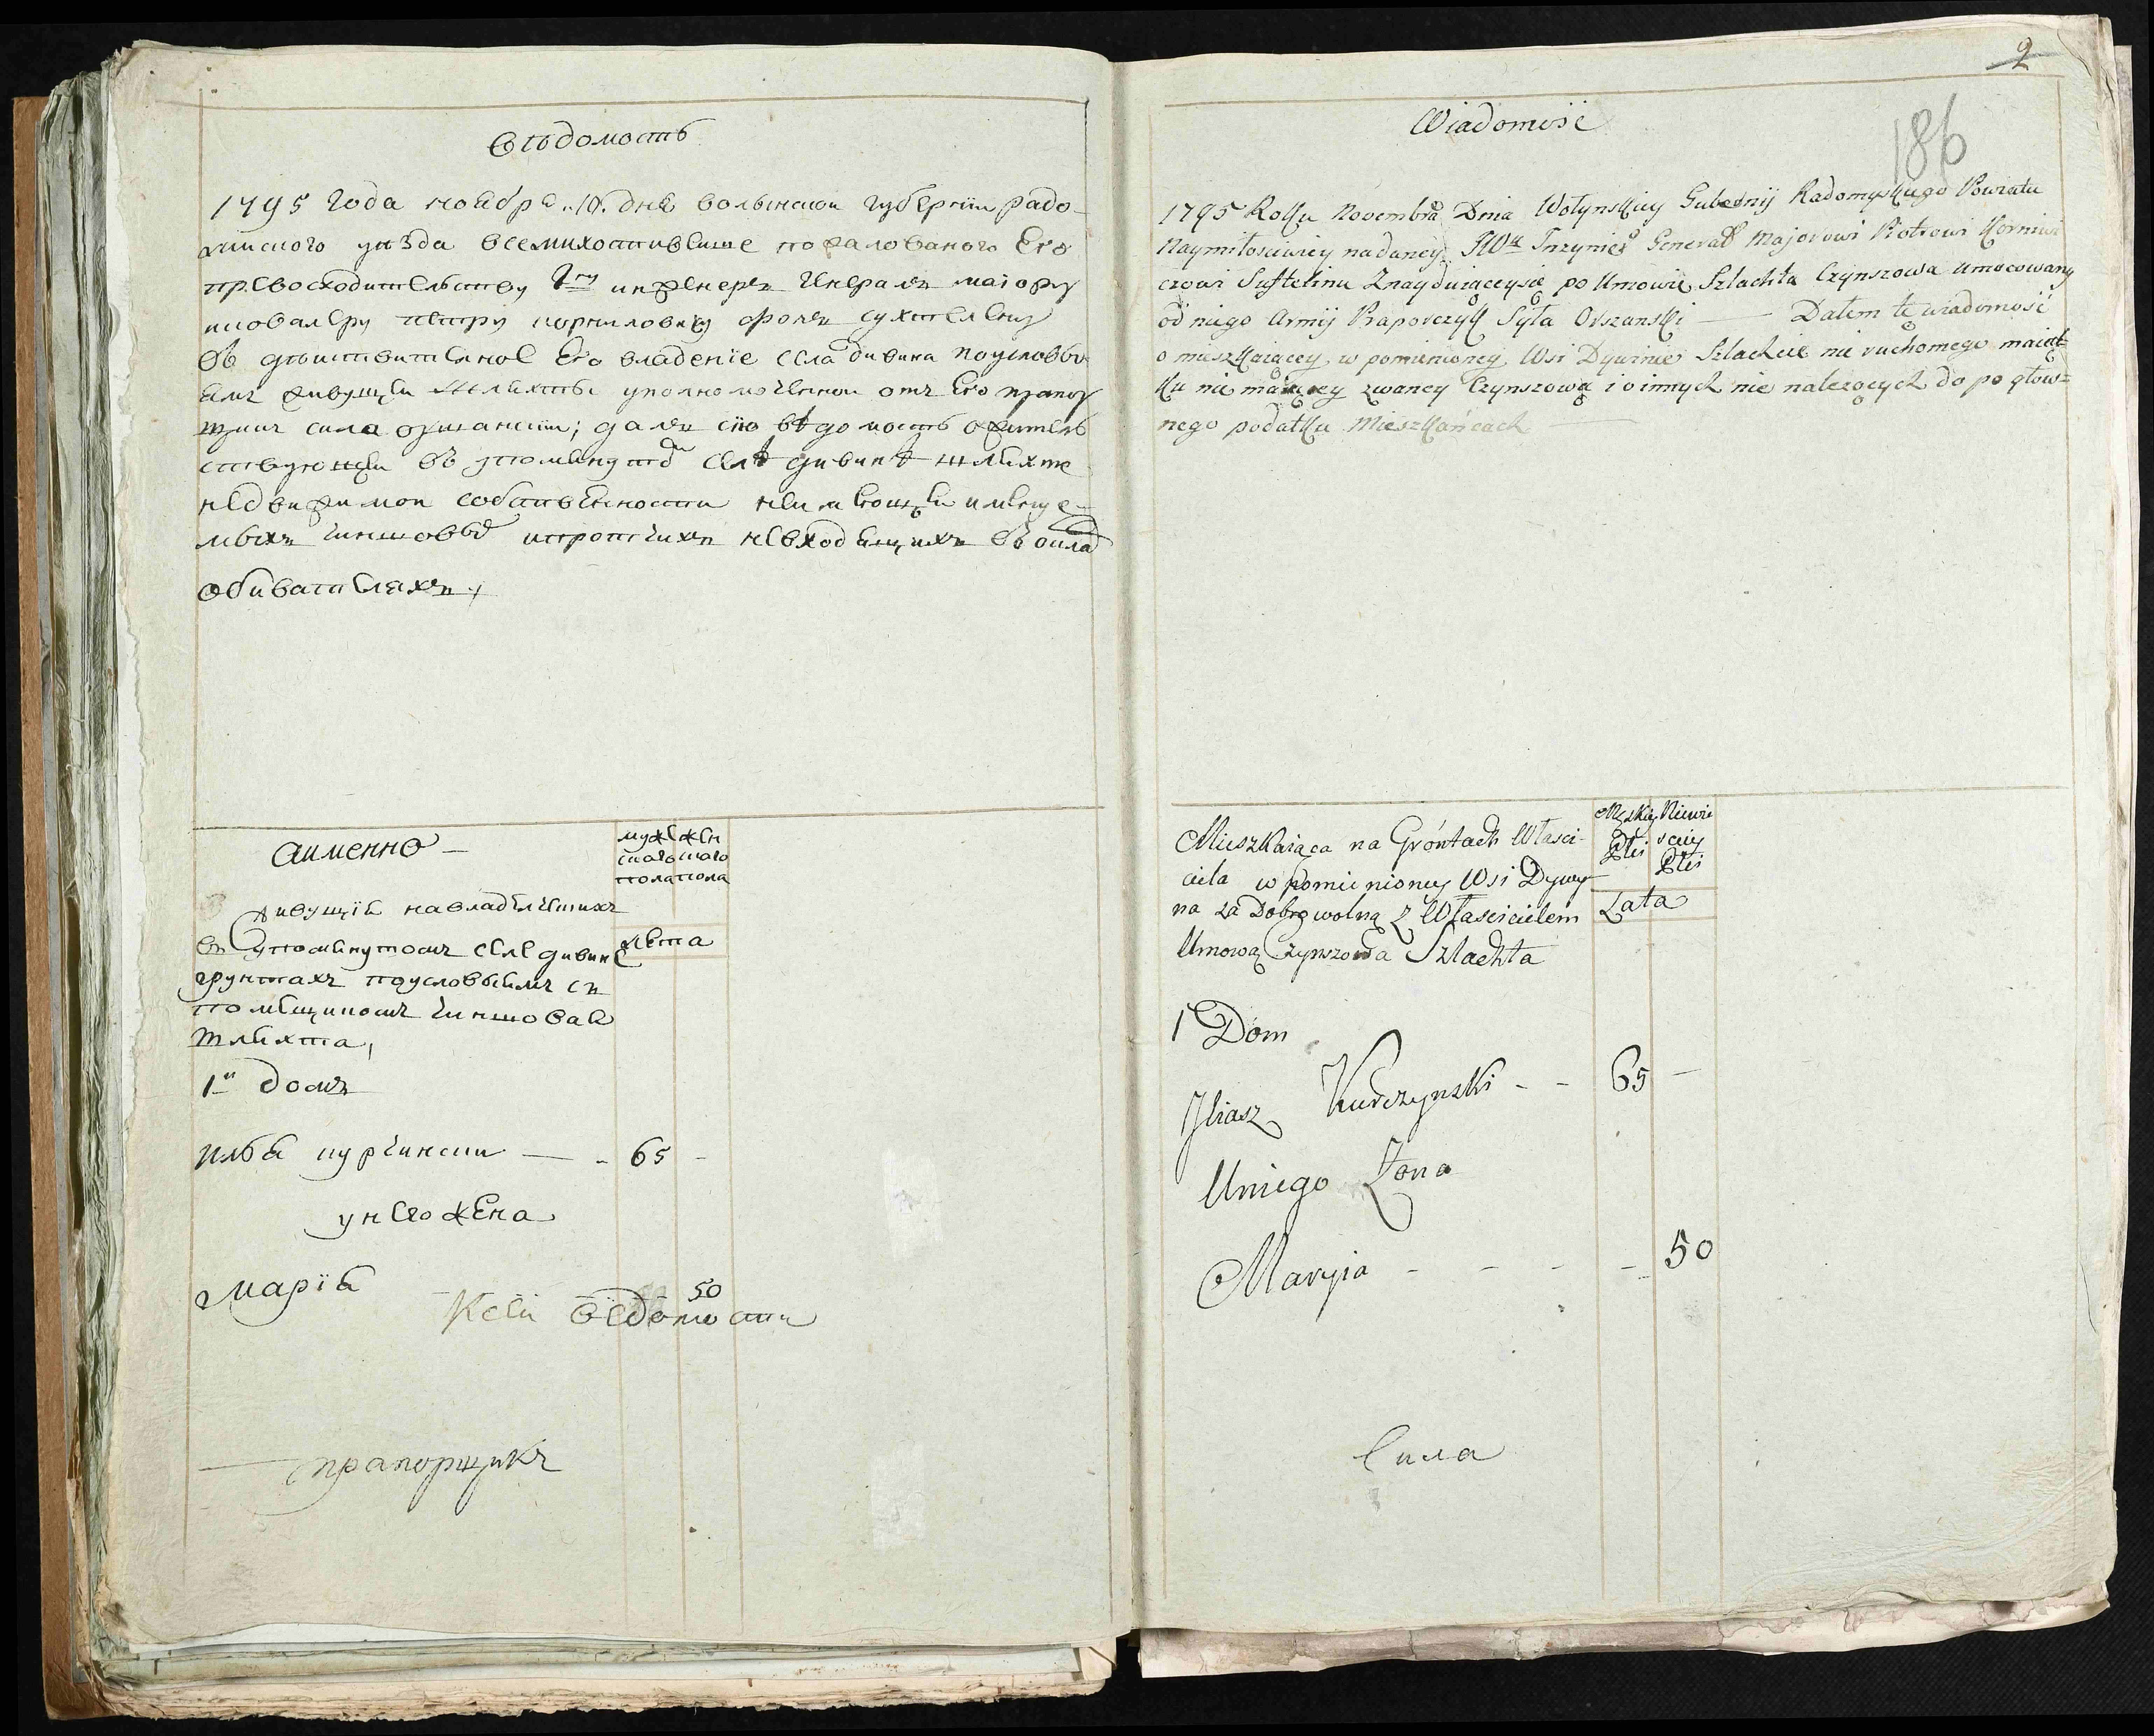 Вѣдомость
1795 года ноября 10. дня волынской губерніи радо-
мысного уѣзда всемилостивѣише пожалованого Его
превосходительству Гну инженеръ генералъ маіору
и ковалеру петру корниловичу фонъ сухтелену
въ дѣиствителное Его владение села дивина поусловью
емъ живущеи шляхты уполномоченои отъ Его прапор
щикъ сила оршански; далъ сию вѣдомость ожитель
ствующеи въ упомянутѡ селѣ дивинѣ шляхте
недвижимои собственности неимеющеи именуе-
мыхъ чиншовыѣ и протчихъ невходящихъ въ оклад
обивателяхъ;
Аименно –
мужеска женского
пола пола
живущія навладѣлчишихъ
въ упомянутомъ селе дивине
грунтахъ поусловыямъ съ
помѣщикомъ чиншовая
шляхта,
лѣта
1й домъ
Илья курчински — - 65 -
у него жена
марія - - - 50
Ксеи ведомости
прапорщикъ
2
186
Wiadomość
1795 Roku Novembra Dnia Wołynskiey Gubernij Radomyskiego Powiatu
Naymiłosciwiey nadaney JWu Inzynier Generał Majorowi Piotrowi Korniwi
czowi Suftelinu Znayduiąceysię po Umowie Szlachta Czynszowa umocowany
od niego Armij Praporczyk Syła Orszanski — Dałem tę wiadomość
o mieszkaiącey w pomienioney Wsi Dywinie Szlachcie nie ruchomego maiąt-
ku nie maiącey zwaney Czynszową i o innych nie nalezących do pogłow=
nego podatku Mieszkańcach —
Mieszkaiąca na Gróntach Własci-
ciela w Pomienioney Wsi Dywy-
na za Dobrowolną z Włascicielem
Umową Czynszowa Szlachta
Męzkiey Płci
Niewi
sciey
Płci
Lata
1 Dom
Jliasz Kurczynski - - 65 -
U niego Zona
Maryia - - - - 50
Сила